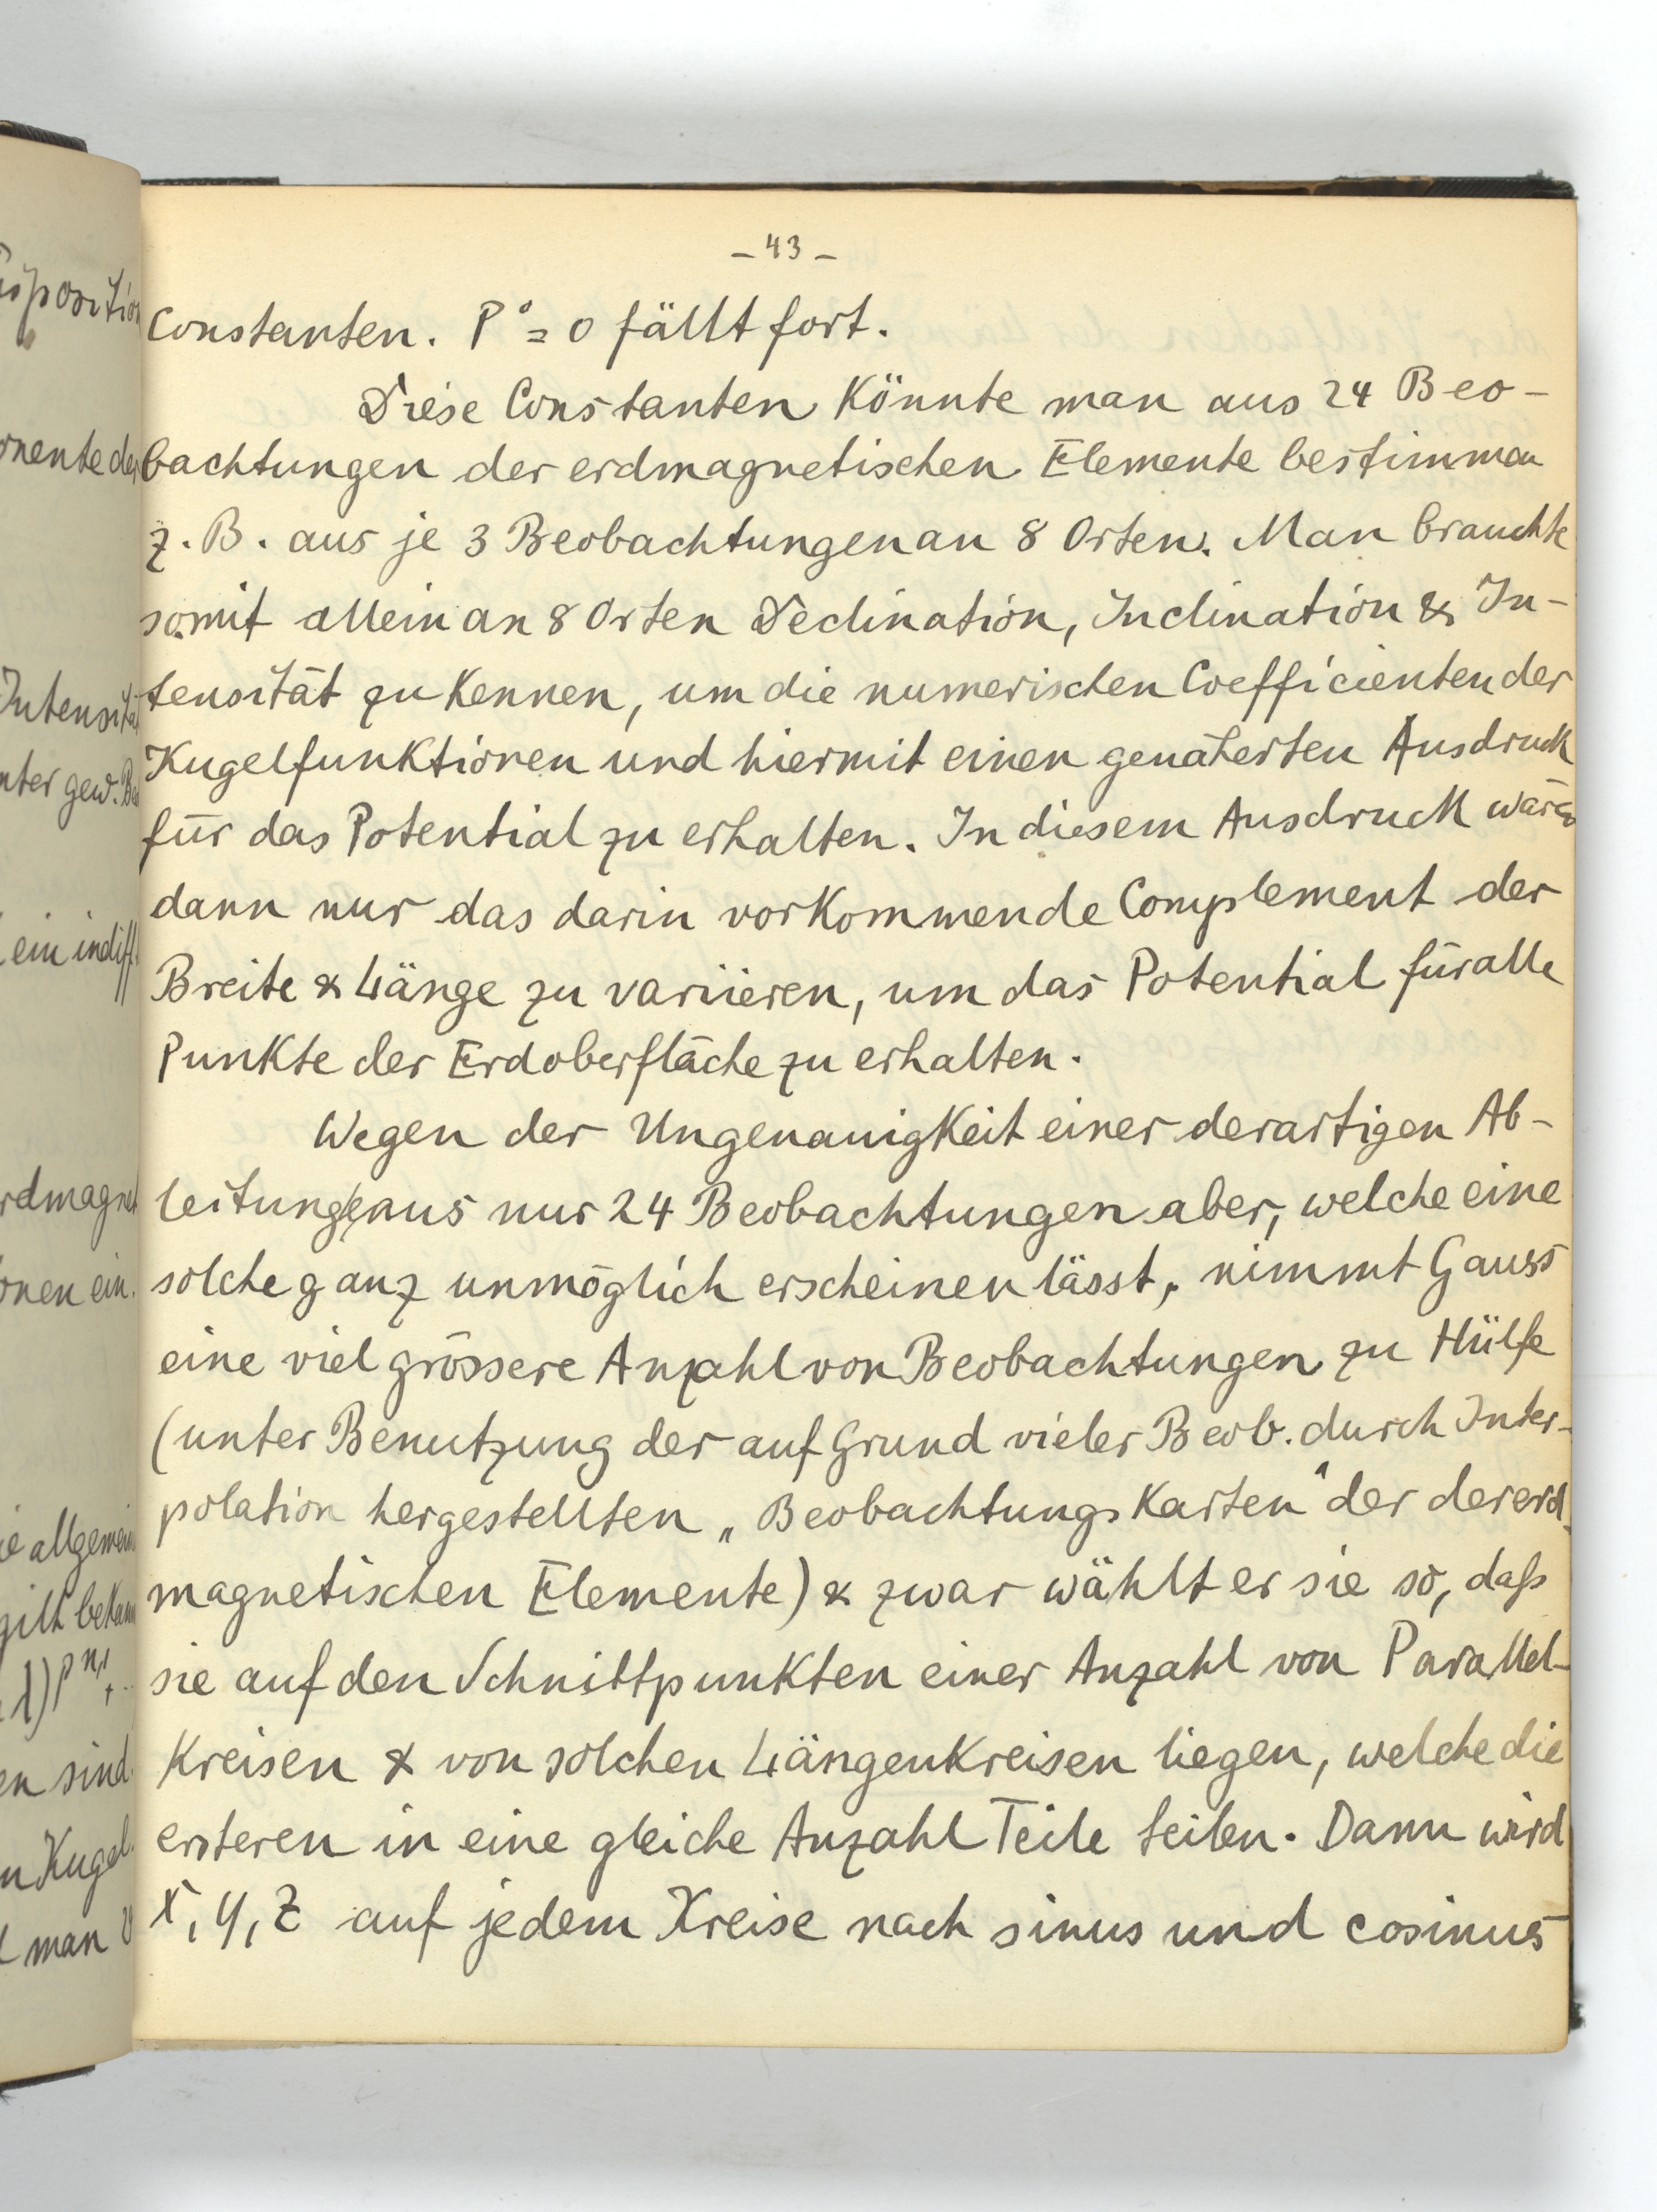 - 43 -
Constanten. P° = 0 fällt fort.
Diese Constanten könnte man aus 24 Beo-
bachtungen der erdmagnetischen Elemente bestimmen
z. B. aus je 3 Beobachtungen an 8 Orten. Man brauchte
somit allein an 8 Orten Declination, Inclination & In-
tensität zu kennen, um die numerischen Coefficienten der
Kugelfunktionen und hiermit einen genäherten Ausdruck
für das Potential zu erhalten. In diesem Ausdruck wären
dann nur das darin vorkommende Complement der
Breite & Länge zu variieren, um das Potential für alle
Punkte der Erdoberfläche zu erhalten.
Wegen der Ungenauigkeit einer derartigen Ab-
leitung aus nur 24 Beobachtungen aber, welche eine
solche ganz unmöglich erscheinen lässt, nimmt Gauss
eine viel grössere Anzahl von Beobachtungen zu Hülfe
(unter Benutzung der auf Grund vieler Beob. durch Inter-
polation hergestellten „Beobachtungskarten" der der erd-
magnetischen Elemente) & zwar wählt er sie so, daß
sie auf den Schnittpunkten einer Anzahl von Parallel-
kreisen & von solchen Längenkreisen liegen, welche die
ersteren in eine gleiche Anzahl Teile teilen. Dann wird
X, Y, Z auf jedem Kreise nach sinus und cosinus